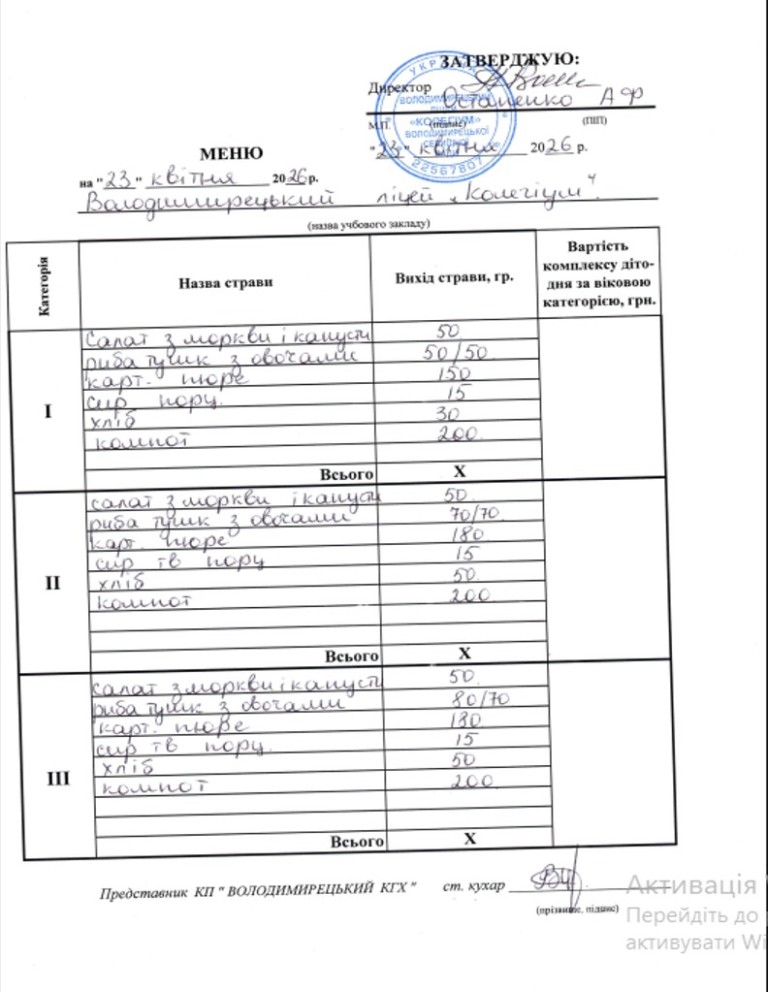 ЗАТВЕРДЖУЮ:
Директор
Остапенко А Ф
М.П. (підпис) (ПІП)
"23" квітня 2026 р.
УКРАЇНА
ВОЛОДИМИРЕЦЬКИЙ
ЛІЦЕЙ
«КОЛЕГІУМ»
ВОЛОДИМИРЕЦЬКОЇ
СЕЛИЩНОЇ
22567807
МЕНЮ
на "23" квітня 2026р.
Володимирецький ліцей „Колегіум“.
(назва учбового закладу)
Категорія Назва страви Вихід страви, гр. Вартість комплексу діто-дня за віковою категорією, грн.
I
Салат з моркви і капусти 50
риба тушк з овочами 50/50
карт. пюре 150
сир порц. 15
хліб 30
компот 200
Всього X
II
салат з моркви і капусти 50
риба тушк з овочами 70/70
карт. пюре 180
сир тв порц 15
хліб 50
компот 200
Всього X
III
салат з моркви і капусти 50
риба тушк з овочами 80/70
карт. пюре 180
сир тв порц. 15
хліб 50
компот 200
Всього X
Представник КП " ВОЛОДИМИРЕЦЬКИЙ КГХ " ст. кухар
(прізвище, підпис)
Активація
Перейдіть до
активувати Wi